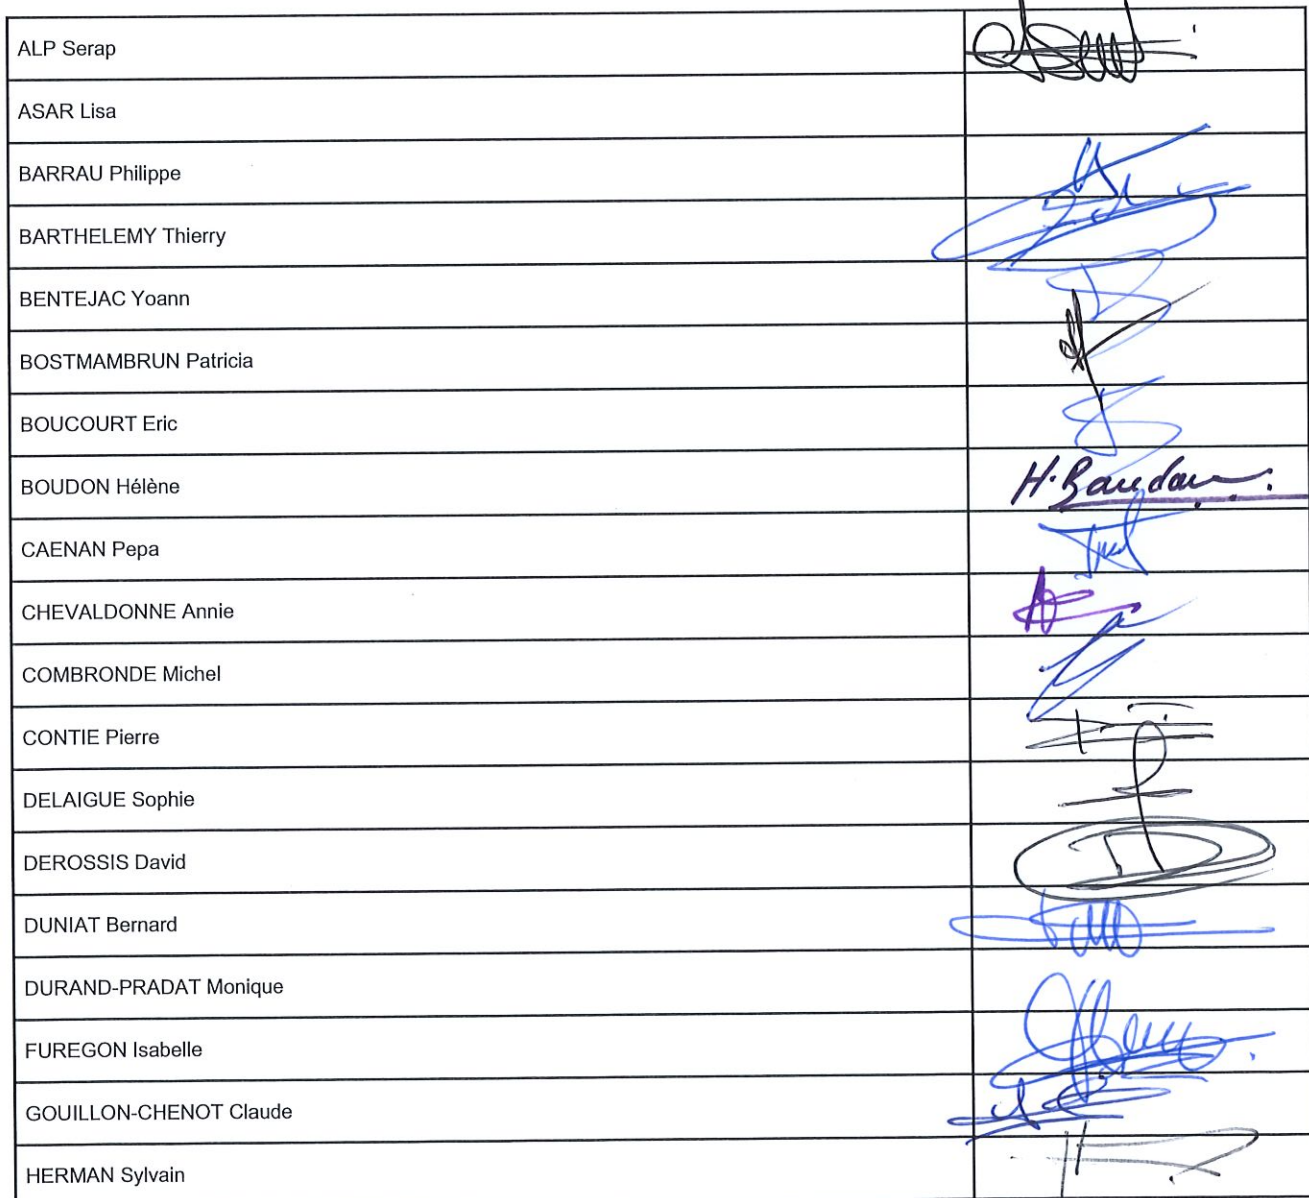 ALP Serap
ASAR Lisa
BARRAU Philippe
BARTHELEMY Thierry
BENTEJAC Yoann
BOSTMAMBRUN Patricia
BOUCOURT Eric
BOUDON Hélène H. Boudon
CAENAN Pepa
CHEVALDONNE Annie
COMBRONDE Michel
CONTIE Pierre
DELAIGUE Sophie
DEROSSIS David
DUNIAT Bernard
DURAND-PRADAT Monique
FUREGON Isabelle
GOUILLON-CHENOT Claude
HERMAN Sylvain